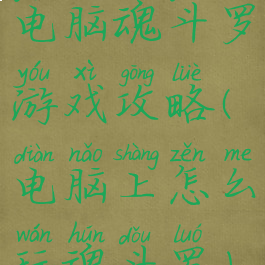 电脑魂斗罗
yóu xì gōng lüè
游戏攻略(
diàn nǎo shàng zěn me
电脑上怎么
wán hún dǒu luó
玩魂斗罗)